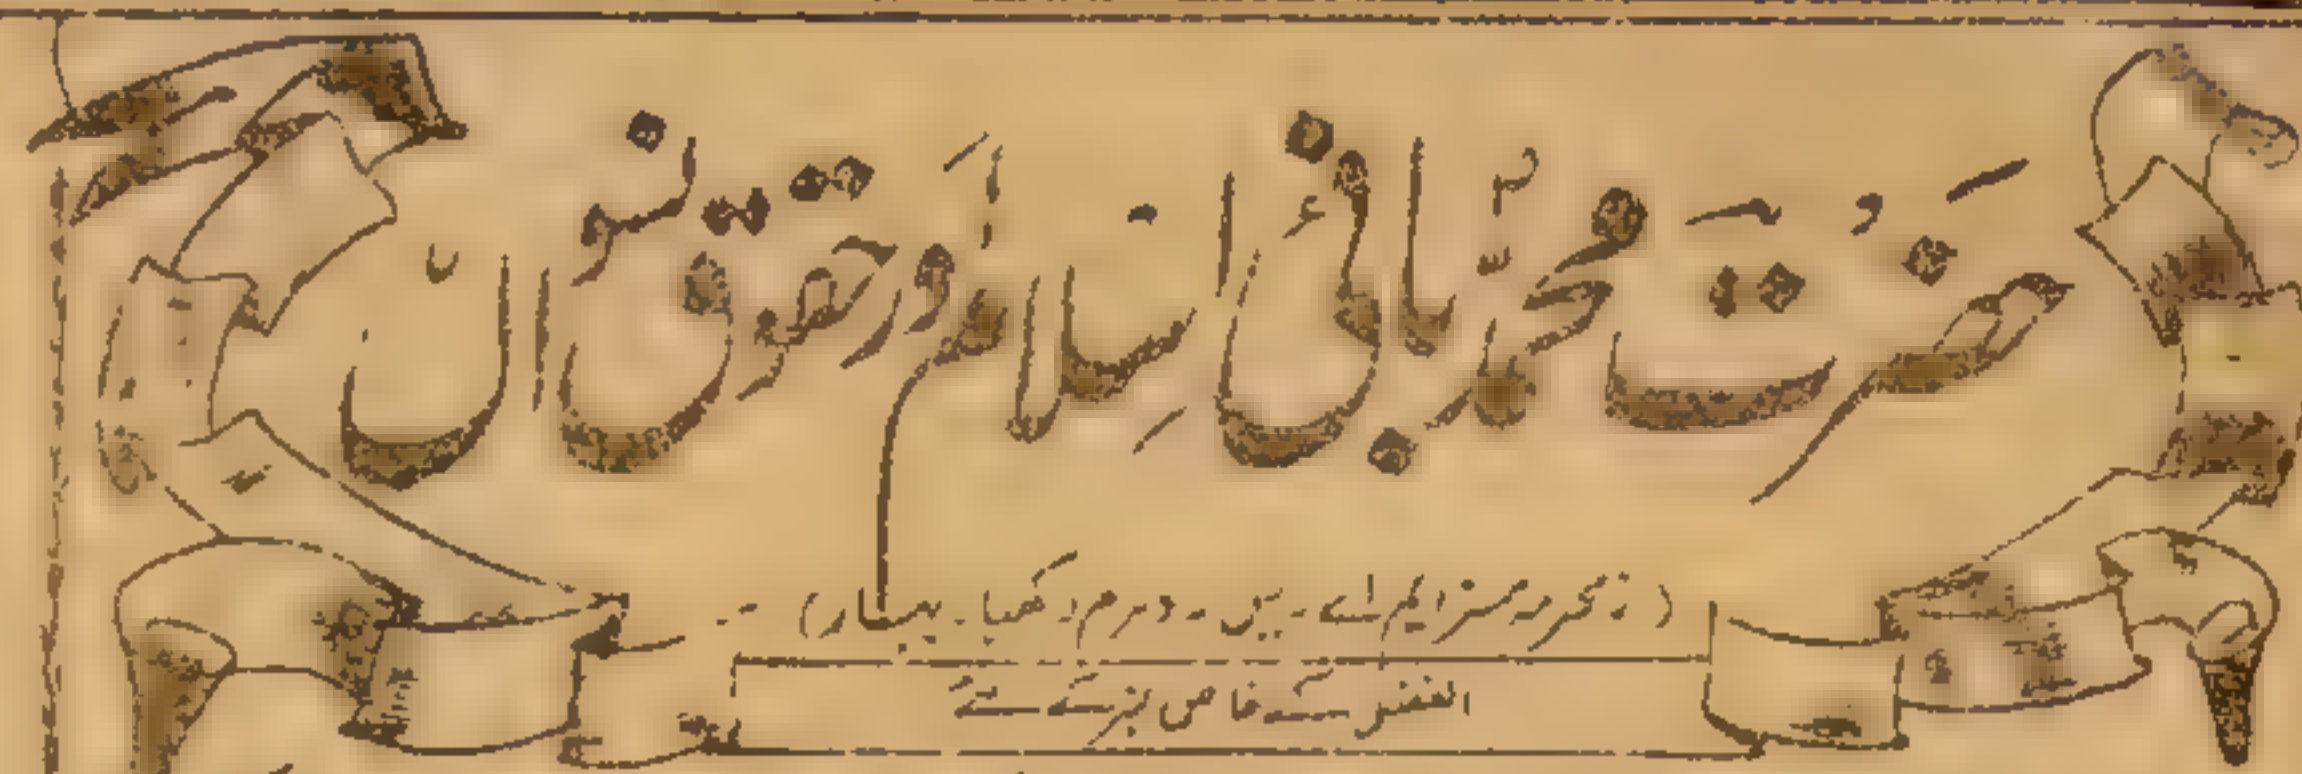 حضرت محمدؐ بانئ اسلام اور حقوقِ نسواں
(تحریر مسز ایم اے۔ - دہرم رکھیا۔ بہار)
الفضل کے خاص نمبر کے لئے